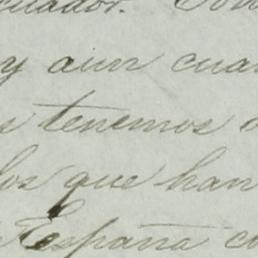 cuador. Con
y aun cuan
s tenemos
los que han
España co